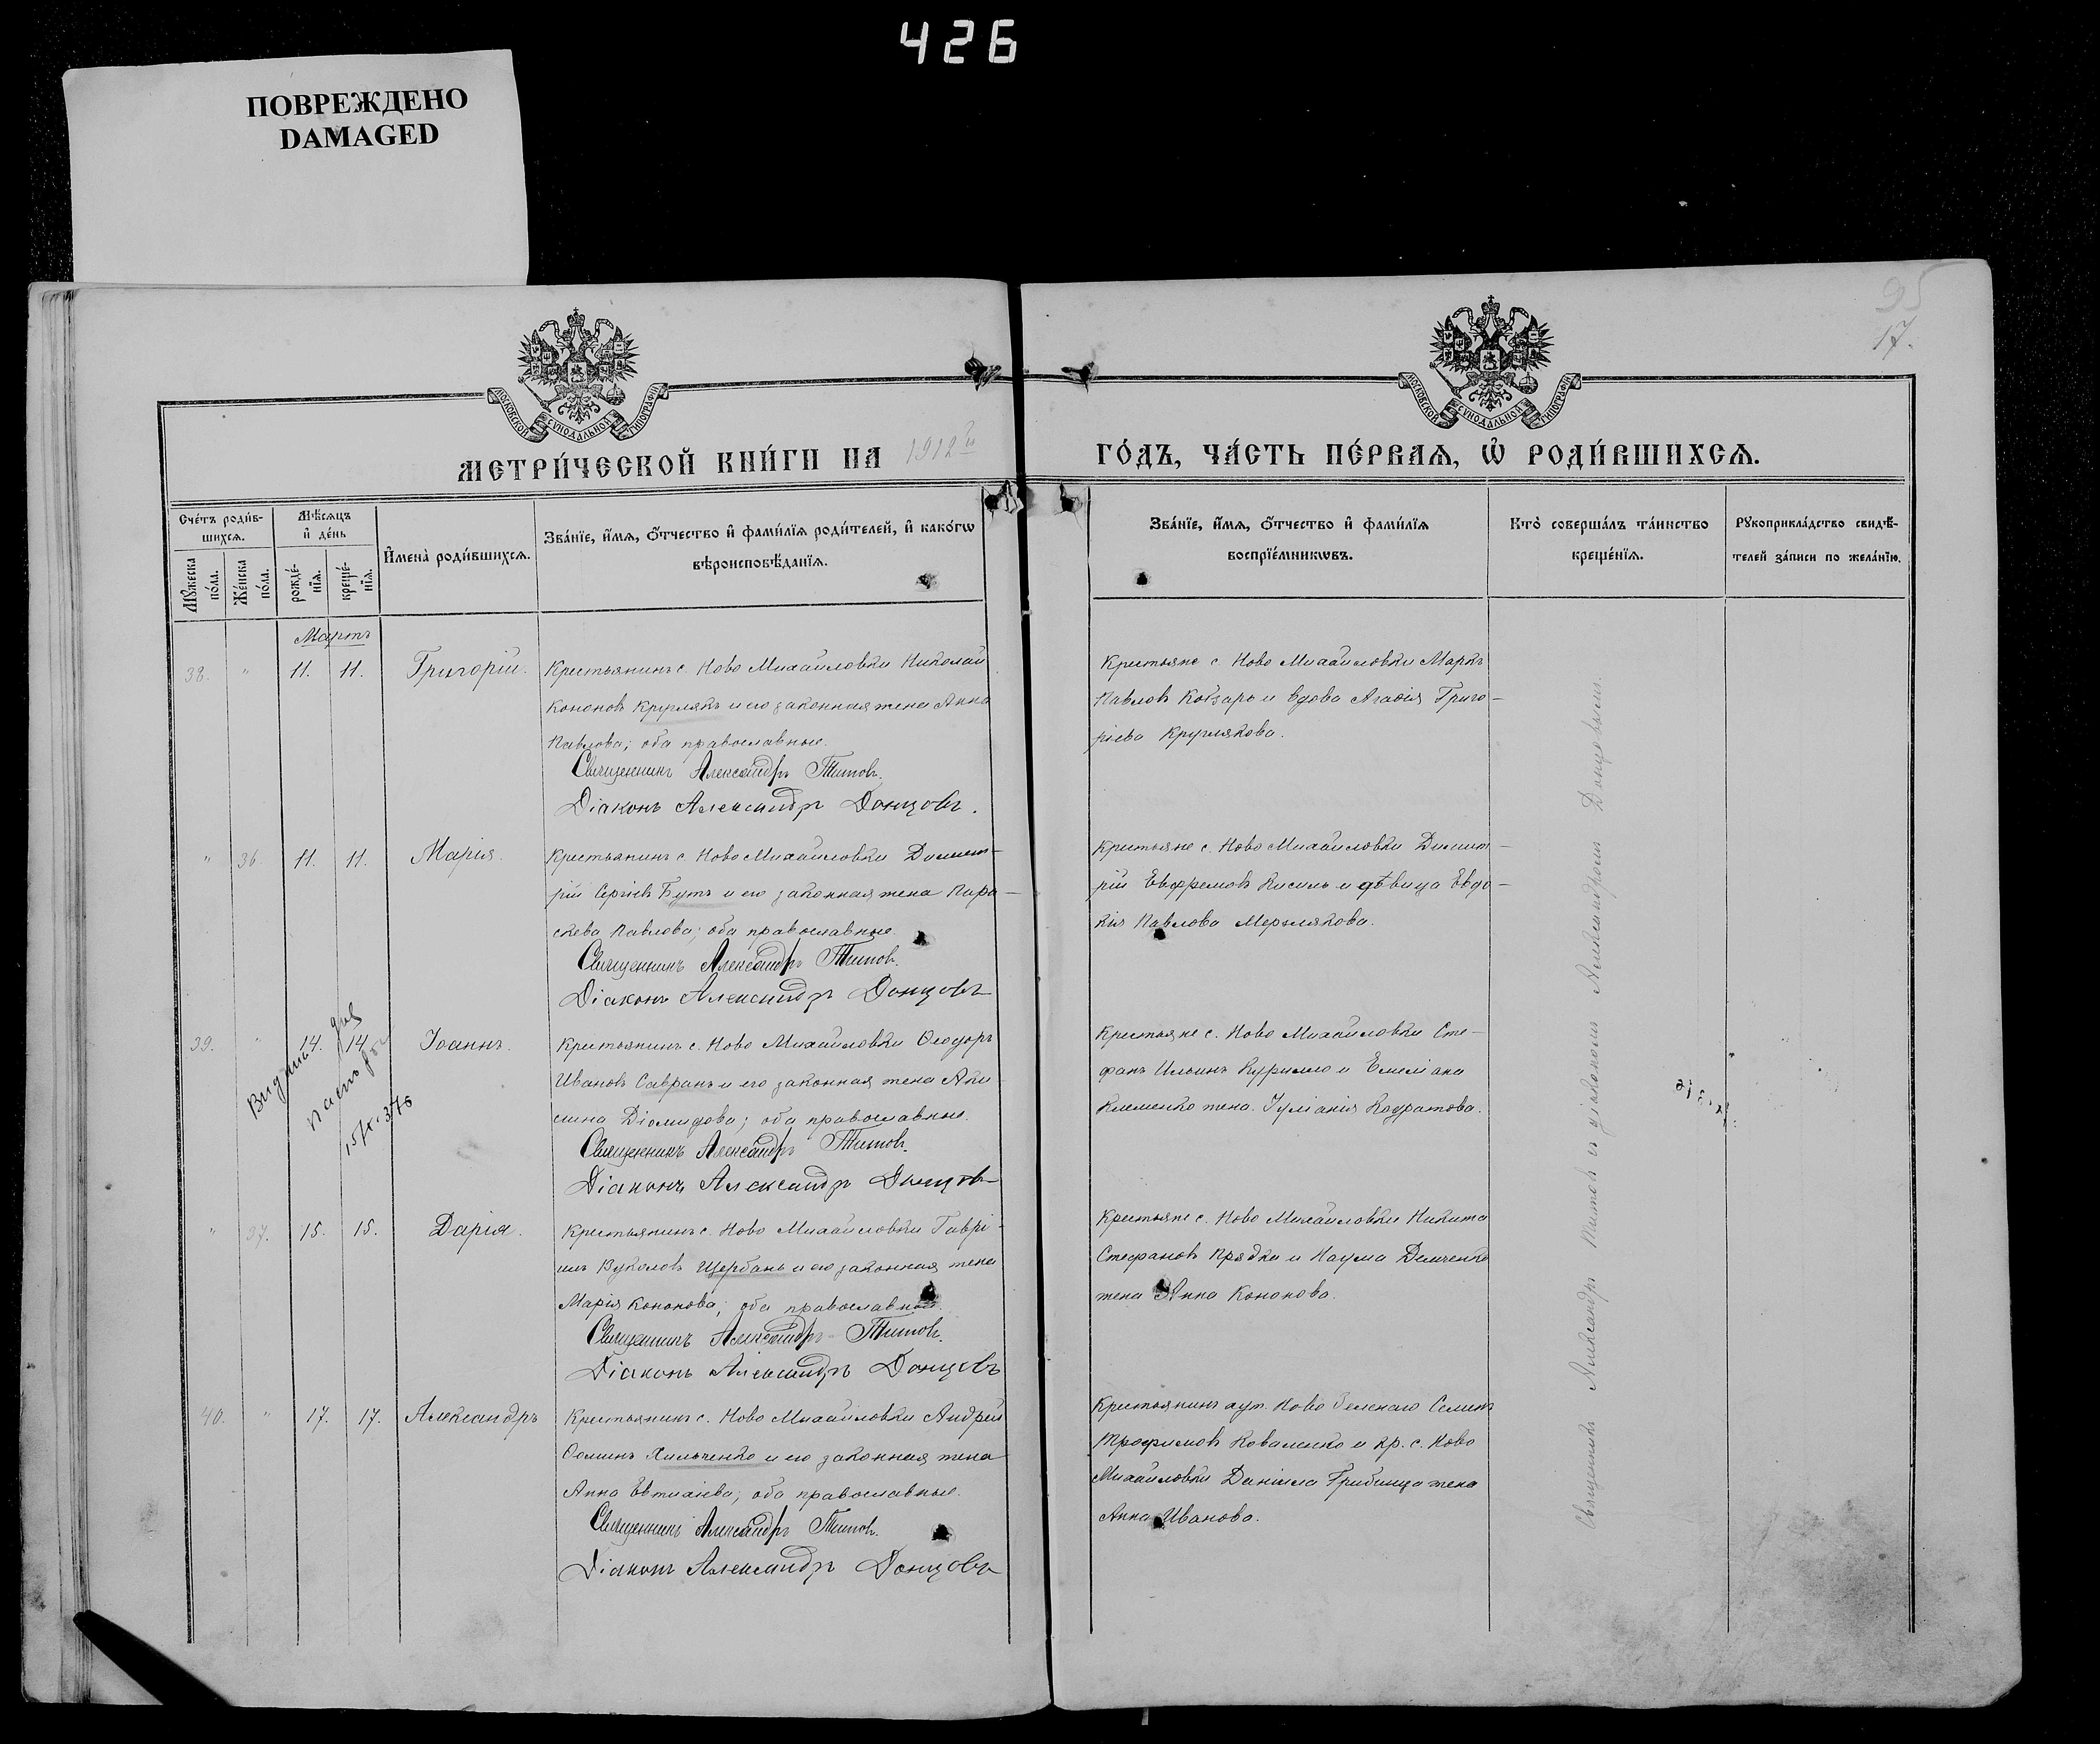 426
ПОВРЕЖДЕНО
DAMAGED
95
17.
МОСКОВСКОЙ СУНОДАЛЬНОЙ ТИПОГРАФІИ
МОСКОВСКОЙ СУНОДАЛЬНОЙ ТИПОГРАФІИ
МЕТРИ́ЧЕСКОЙ КНИ́ГИ НА 1912й ГО́ДЪ, ЧА́СТЬ ПЕ́РВАѦ, Ѽ РОДИ́ВШИХСѦ.
Сче́тъ роди́в-
шихсѧ.
Мѣ́сѧцъ
и҆ де́нь
Мꙋ́жеска по́ла.
Же́нска по́ла.
рожде́-
нїѧ.
креще́-
нїѧ.
И҆мена̀ роди́вшихсѧ.
Зва́нїе, и҆́мѧ, ѻ҆́тчество и҆ фами́лїѧ роди́телей, и҆ како́гѡ
вѣроисповѣ́данїѧ.
Зва́нїе, и҆́мѧ, ѻ҆́тчество и҆ фами́лїѧ
воспрїе́мникѡвъ.
Кто̀ соверша́лъ та́инство
креще́нїѧ.
Рꙋкоприкла́дство свидѣ́-
телей за́писи по жела́нїю.
Мартъ
38. " 11. 11. Григорій.
Крестьянинъ с. Ново Михайловки Николай
Кононовъ Круглякъ и его законная жена Анна
Павлова; оба православные.
Священникъ Александръ Титовъ.
Діаконъ Александръ Донцовъ.
Крестьяне с. Ново Михайловки Маркъ
Павловъ Кобзарь и вдова Агафія Григо-
рьева Круглякова.
" 36 11. 11. Марія.
Крестьянинъ с. Ново Михайловки Димит-
рій Сергіевъ Бутъ и его законная жена Пара-
скева Павлова; оба православные.
Священникъ Александръ Титовъ.
Діаконъ Александръ Донцовъ
Крестьяне с. Ново Михайловки Димит-
рій Евфремовъ Кисиль и дѣвица Евдо-
кія Павлова Мерзлякова.
39. " 14. 14. Іоаннъ.
Крестьянинъ с. Ново Михайловки Ѳеодоръ
Ивановъ Савранъ и его законная жена Аки
лина Діомидова; оба православные.
Священникъ Александръ Титовъ.
Діаконъ Александръ Донцовъ
Крестьяне с. Ново Михайловки Сте-
фанъ Ильинъ Курилло и Емеліана
Клеменко жена Іуліанія Кодратова.
" 37. 15. 15. Дарія.
Крестьянинъ с. Ново Михайловки Гаврі-
илъ Вуколовъ Щербань и его законная жена
Марія Кононова; оба православные.
Священникъ Александръ Титовъ.
Діаконъ Александръ Донцовъ
Крестьяне с. Ново Михайловки Никита
Стефановъ Прядка и Наума Демченко
жена Анна Кононова.
40. " 17. 17. Александръ
Крестьянинъ с. Ново Михайловки Андрей
Ѳоминъ Хильченко и его законная жена
Анна Евтихіева; оба православные.
Священникъ Александръ Титовъ.
Діаконъ Александръ Донцовъ
Крестьянинъ хут. Ново
Трофимовъ Коваленко и кр. с. Ново
Михайловки Даніила Грибиница жена
Анна Иванова.
Священникъ Александръ Титовъ съ діакономъ Александромъ Донцовымъ.